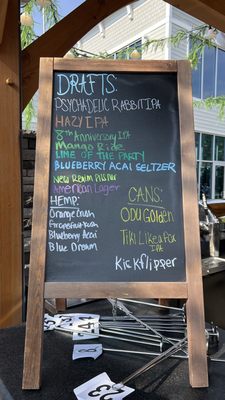 DRAFTS:
PSYCHADELIC RABBIT IPA
HAZY IPA
8th Anniversary IPA
Mango Ride
LINE OF THE PARTY
BLUEBERRY ACAI SELTZER
New Realm Pilsner
American Lager
HEMP:
Orange Crush
Grapefruit Kush
Blueberry Acai
Blue Dream
CANS:
ODU Golden
Tiki Like a Fox
IPA
Kickflipper
24
8
23